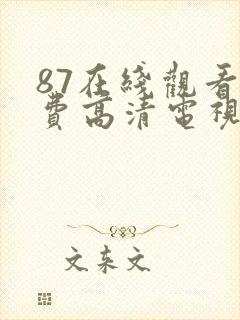 87在綫觀看
費高清電視
文东文